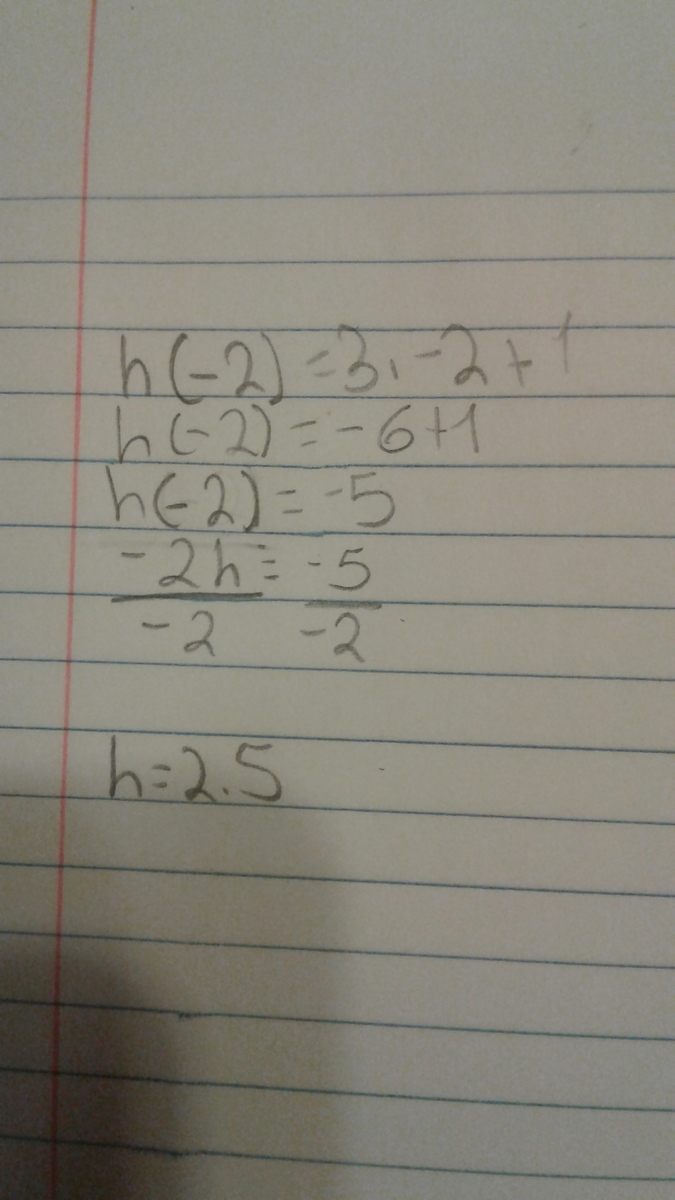 h(-2) = 3·-2+1
h(-2) = -6+1
h(-2) = -5
-2h = -5
-2 -2
h=2.5